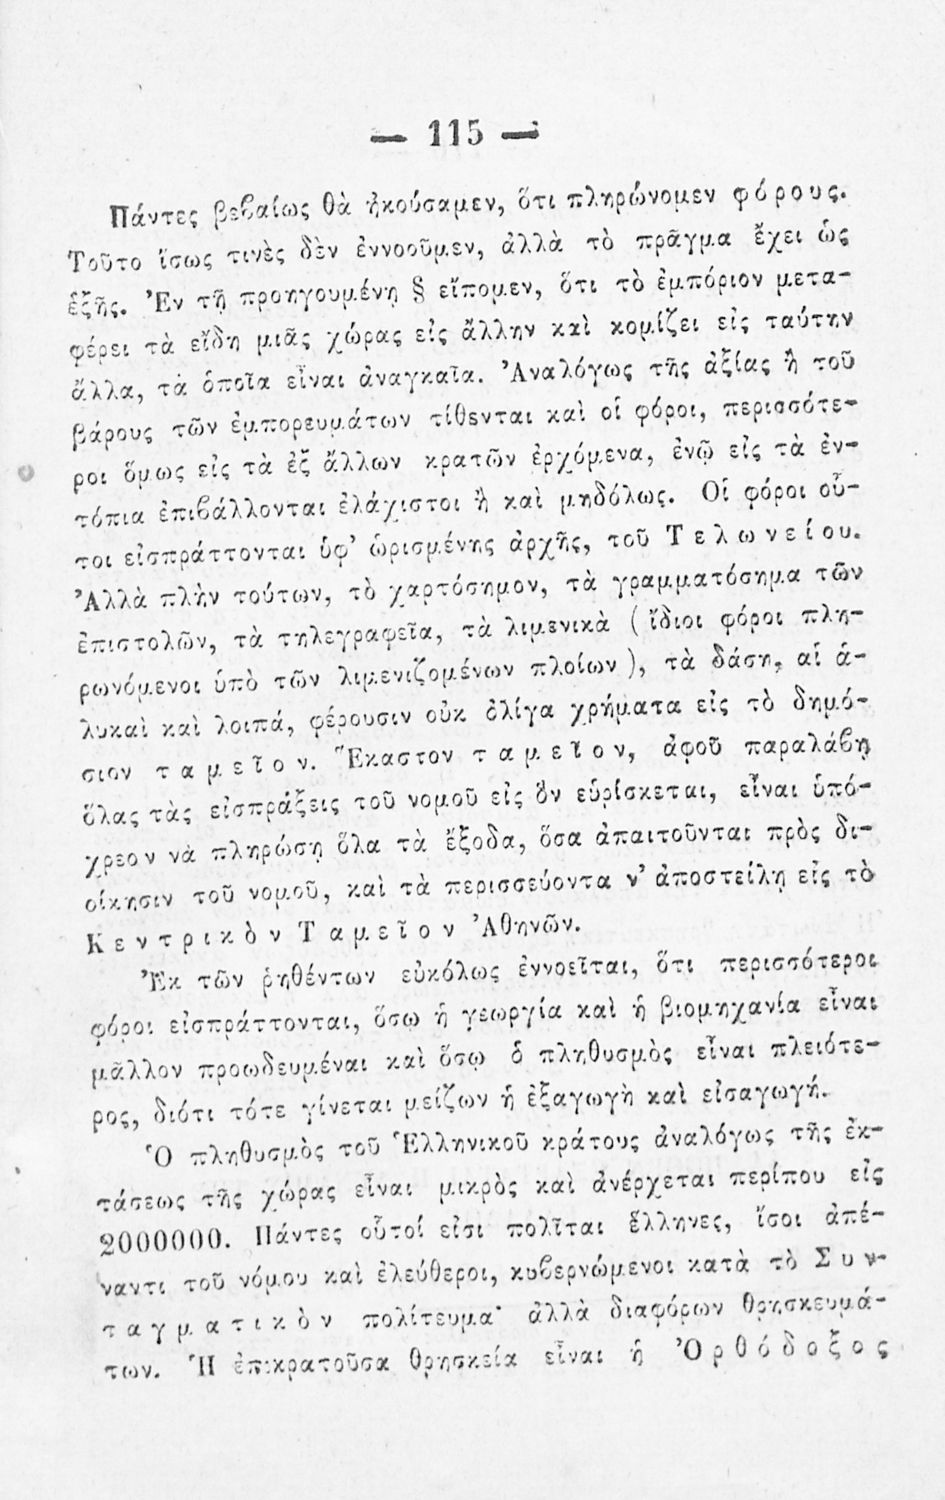 — 115 —
Πάντες βεβαίως θὰ ἠκούσαμεν, ὅτι πληρώνομεν φόρους.
Τοῦτο ἴσως τινὲς δὲν ἐννοοῦμεν, ἀλλὰ τὸ πρᾶγμα ἔχει ὡς
ἑξῆς. Ἐν τῇ προηγουμένῃ § εἴπομεν, ὅτι τὸ ἐμπόριον μετα-
φέρει τὰ εἴδη μιᾶς χώρας εἰς ἄλλην καὶ κομίζει εἰς ταύτην
ἄλλα, τὰ ὁποῖα εἶναι ἀναγκαῖα. Ἀναλόγως τῆς ἀξίας ἢ τοῦ
βάρους τῶν ἐμπορευμάτων τίθενται καὶ οἱ φόροι, περισσότε-
ροι ὅμως εἰς τὰ ἐξ ἄλλων κρατῶν ἐρχόμενα, ἐνῷ εἰς τὰ ἐν-
τόπια ἐπιβάλλονται ἐλάχιστοι ἢ καὶ μηδόλως. Οἱ φόροι οὗ-
τοι εἰσπράττονται ὑφ’ ὡρισμένης ἀρχῆς, τοῦ Τελωνείου.
Ἀλλὰ πλὴν τούτων, τὸ χαρτόσημον, τὰ γραμματόσημα τῶν
ἐπιστολῶν, τὰ τηλεγραφεῖα, τὰ λιμενικὰ (ἴδιοι φόροι πλη-
ρωνόμενοι ὑπὸ τῶν λιμενιζομένων πλοίων), τὰ δάση, αἱ ἁ-
λυκαὶ καὶ λοιπά, φέρουσιν οὐκ ὀλίγα χρήματα εἰς τὸ δημό-
σιον ταμεῖον. Ἕκαστον ταμεῖον, ἀφοῦ παραλάβῃ
ὅλας τὰς εἰσπράξεις τοῦ νομοῦ εἰς ὃν εὑρίσκεται, εἶναι ὑπό-
χρεον νὰ πληρώσῃ ὅλα τὰ ἔξοδα, ὅσα ἀπαιτοῦνται πρὸς δι-
οίκησιν τοῦ νομοῦ, καὶ τὰ περισσεύοντα ν’ ἀποστείλῃ εἰς τὸ
Κεντρικὸν Ταμεῖον Ἀθηνῶν.
Ἐκ τῶν ῥηθέντων εὐκόλως ἐννοεῖται, ὅτι περισσότεροι
φόροι εἰσπράττονται, ὅσῳ ἡ γεωργία καὶ ἡ βιομηχανία εἶναι
μᾶλλον προωδευμέναι καὶ ὅσῳ ὁ πληθυσμὸς εἶναι πλειότε-
ρος, διότι τότε γίνεται μείζων ἡ ἐξαγωγὴ καὶ εἰσαγωγή.
Ὁ πληθυσμὸς τοῦ Ἑλληνικοῦ κράτους ἀναλόγως τῆς ἐκ-
τάσεως τῆς χώρας εἶναι μικρὸς καὶ ἀνέρχεται περίπου εἰς
2000000. Πάντες οὗτοί εἰσι πολῖται ἕλληνες, ἴσοι ἀπέ-
ναντι τοῦ νόμου καὶ ἐλεύθεροι, κυβερνώμενοι κατὰ τὸ Συν-
ταγματικὸν πολίτευμα· ἀλλὰ διαφόρων θρησκευμά-
των. Ἡ ἐπικρατοῦσα θρησκεία εἶναι ἡ Ὀρθόδοξος